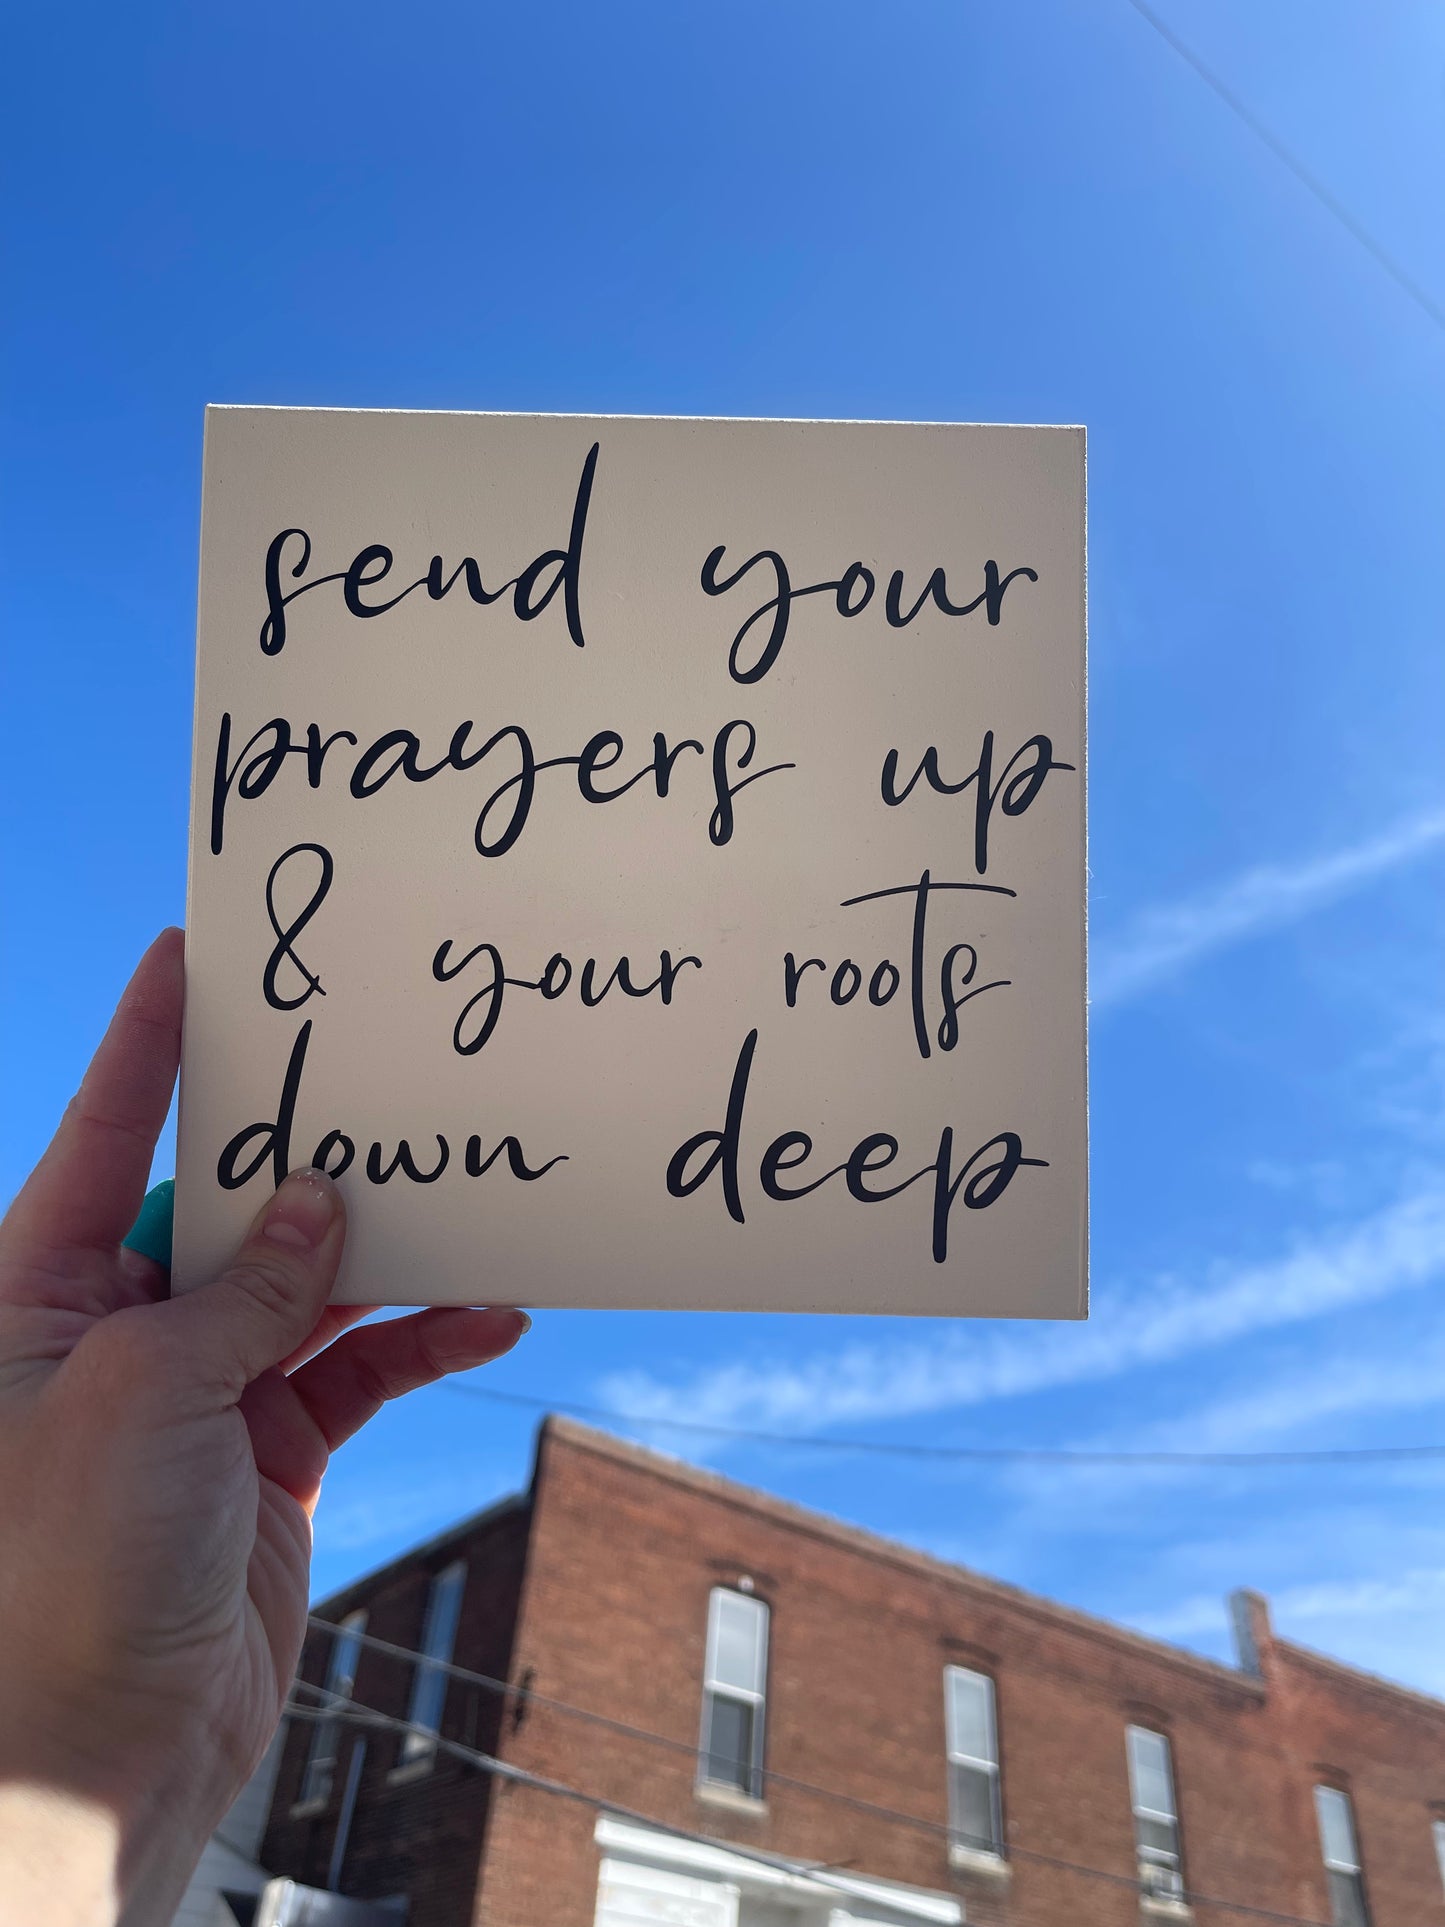 send your
prayers up
& your roots
down deep